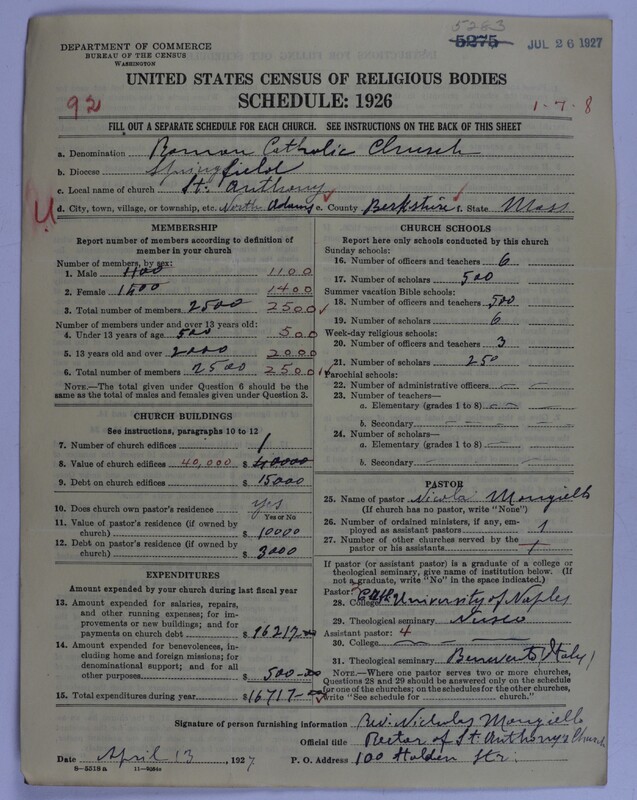 5283
5275
JUL 26 1927
DEPARTMENT OF COMMERCE
BUREAU OF THE CENSUS
WASHINGTON
UNITED STATES CENSUS OF RELIGIOUS BODIES
SCHEDULE: 1926
92
1-7-8
FILL OUT A SEPARATE SCHEDULE FOR EACH CHURCH. SEE INSTRUCTIONS ON THE BACK OF THIS SHEET
a. Denomination Roman Catholic Church
b. Diocese Springfield
c. Local name of church St. Anthony
d. City, town, village, or township, etc. North Adams e. County Berkshire f. State Mass
MEMBERSHIP
Report number of members according to definition of
member in your church
Number of members, by sex:
1. Male 1100 1100
2. Female 1400 1400
3. Total number of members 2500 2500
Number of members under and over 13 years old:
4. Under 13 years of age 500 500
5. 13 years old and over 2000 2000
6. Total number of members 2500 2500
NOTE.—The total given under Question 6 should be the
same as the total of males and females given under Question 3.
CHURCH BUILDINGS
See instructions, paragraphs 10 to 12
7. Number of church edifices 1
8. Value of church edifices 40,000 $ 40000
9. Debt on church edifices $ 15000
10. Does church own pastor's residence? yes
Yes or No
11. Value of pastor's residence (if owned by
church) $ 10000
12. Debt on pastor's residence (if owned by
church) $ 3000
EXPENDITURES
Amount expended by your church during last fiscal year
13. Amount expended for salaries, repairs,
and other running expenses; for im-
provements or new buildings; and for
payments on church debt $ 16217-00
14. Amount expended for benevolences, in-
cluding home and foreign missions; for
denominational support; and for all
other purposes $ 500-00
15. Total expenditures during year $ 16717-00
CHURCH SCHOOLS
Report here only schools conducted by this church
Sunday schools:
16. Number of officers and teachers 6
17. Number of scholars 500
Summer vacation Bible schools:
18. Number of officers and teachers 500
19. Number of scholars 6
Week-day religious schools:
20. Number of officers and teachers 3
21. Number of scholars 250
Parochial schools:
22. Number of administrative officers
23. Number of teachers—
a. Elementary (grades 1 to 8)
b. Secondary
24. Number of scholars—
a. Elementary (grades 1 to 8)
b. Secondary
PASTOR
25. Name of pastor Nicola Mongiello
(If church has no pastor, write "None")
26. Number of ordained ministers, if any, em-
ployed as assistant pastors 1
27. Number of other churches served by the
pastor or his assistants 1
If pastor (or assistant pastor) is a graduate of a college or
theological seminary, give name of institution below. (If
not a graduate, write "No" in the space indicated.)
Pastor:
28. College University of Naples
29. Theological seminary Nusco
Assistant pastor: 4
30. College
31. Theological seminary Benevento (Italy)
NOTE.—Where one pastor serves two or more churches,
Questions 28 and 29 should be answered only on the schedule
for one of the churches; on the schedules for the other churches,
write "See schedule for church."
Signature of person furnishing information Rev. Nicholas Mongiello
Official title Rector of St. Anthony's Church
Date April 13, 1927 P. O. Address 100 Holden Str.
8-5518a 11-9064